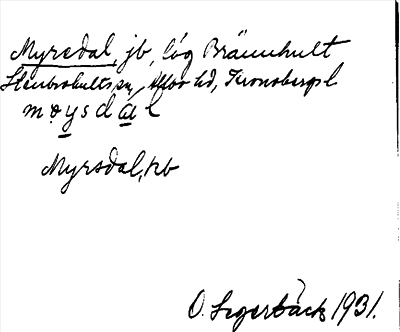 Myredal, jb, låg Brännhult
Stenbrohults sn, Allbo hd, Kronobergs l
møysdal
Myrsdal, rb
O. Segerbäck 1931.